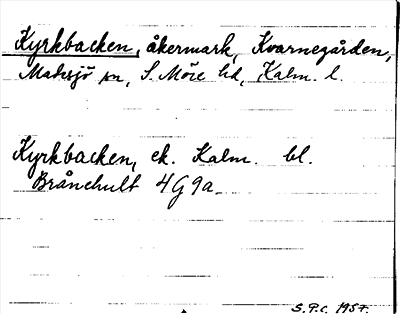 Kyrkbacken, åkermark, Kvarnegården,
Madesjö sn, S. Möre hd, Kalm. l.
Kyrkbacken, ek. Kalm. bl.
Brånahult 4G9a
S.P.C. 1957.